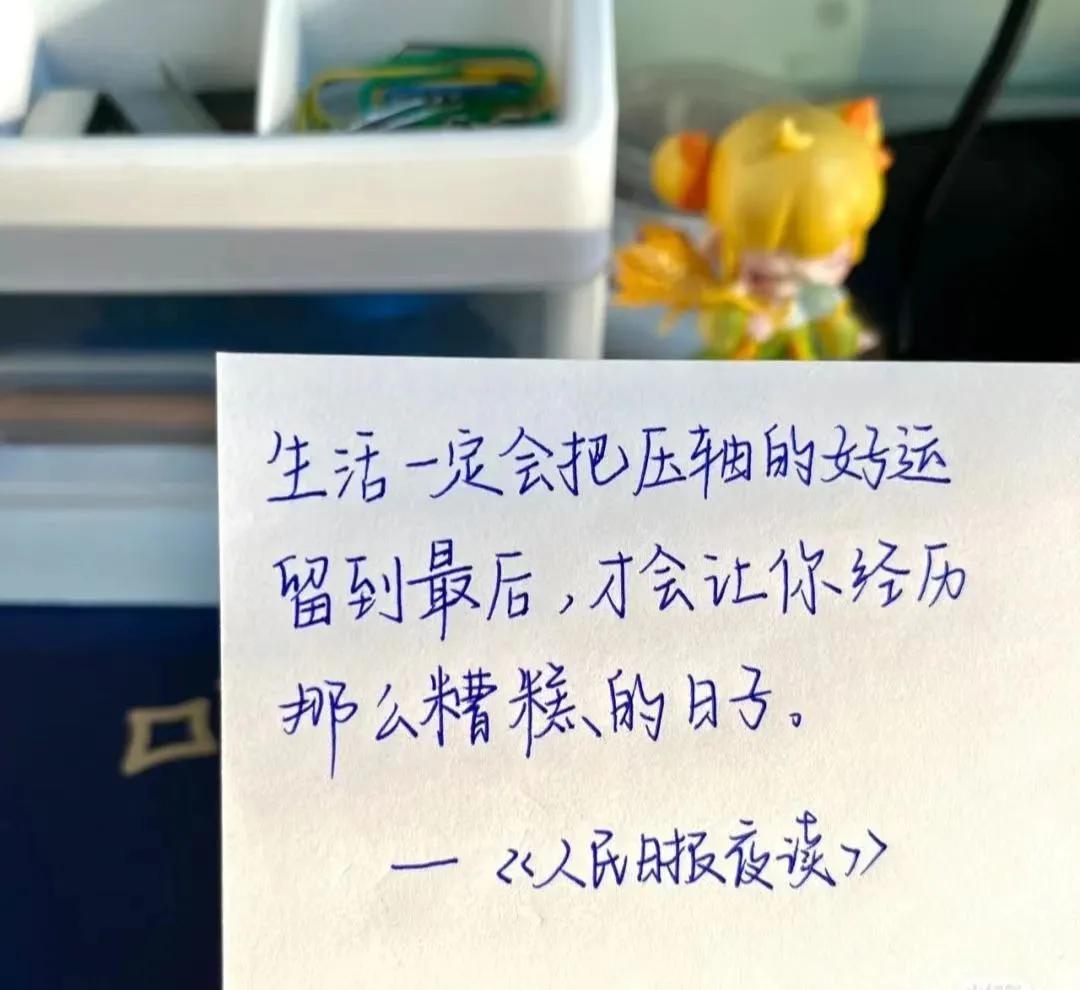 生活一定会把压轴的好运
留到最后,才会让你经历
那么糟糕的日子。
—《人民日报夜读》